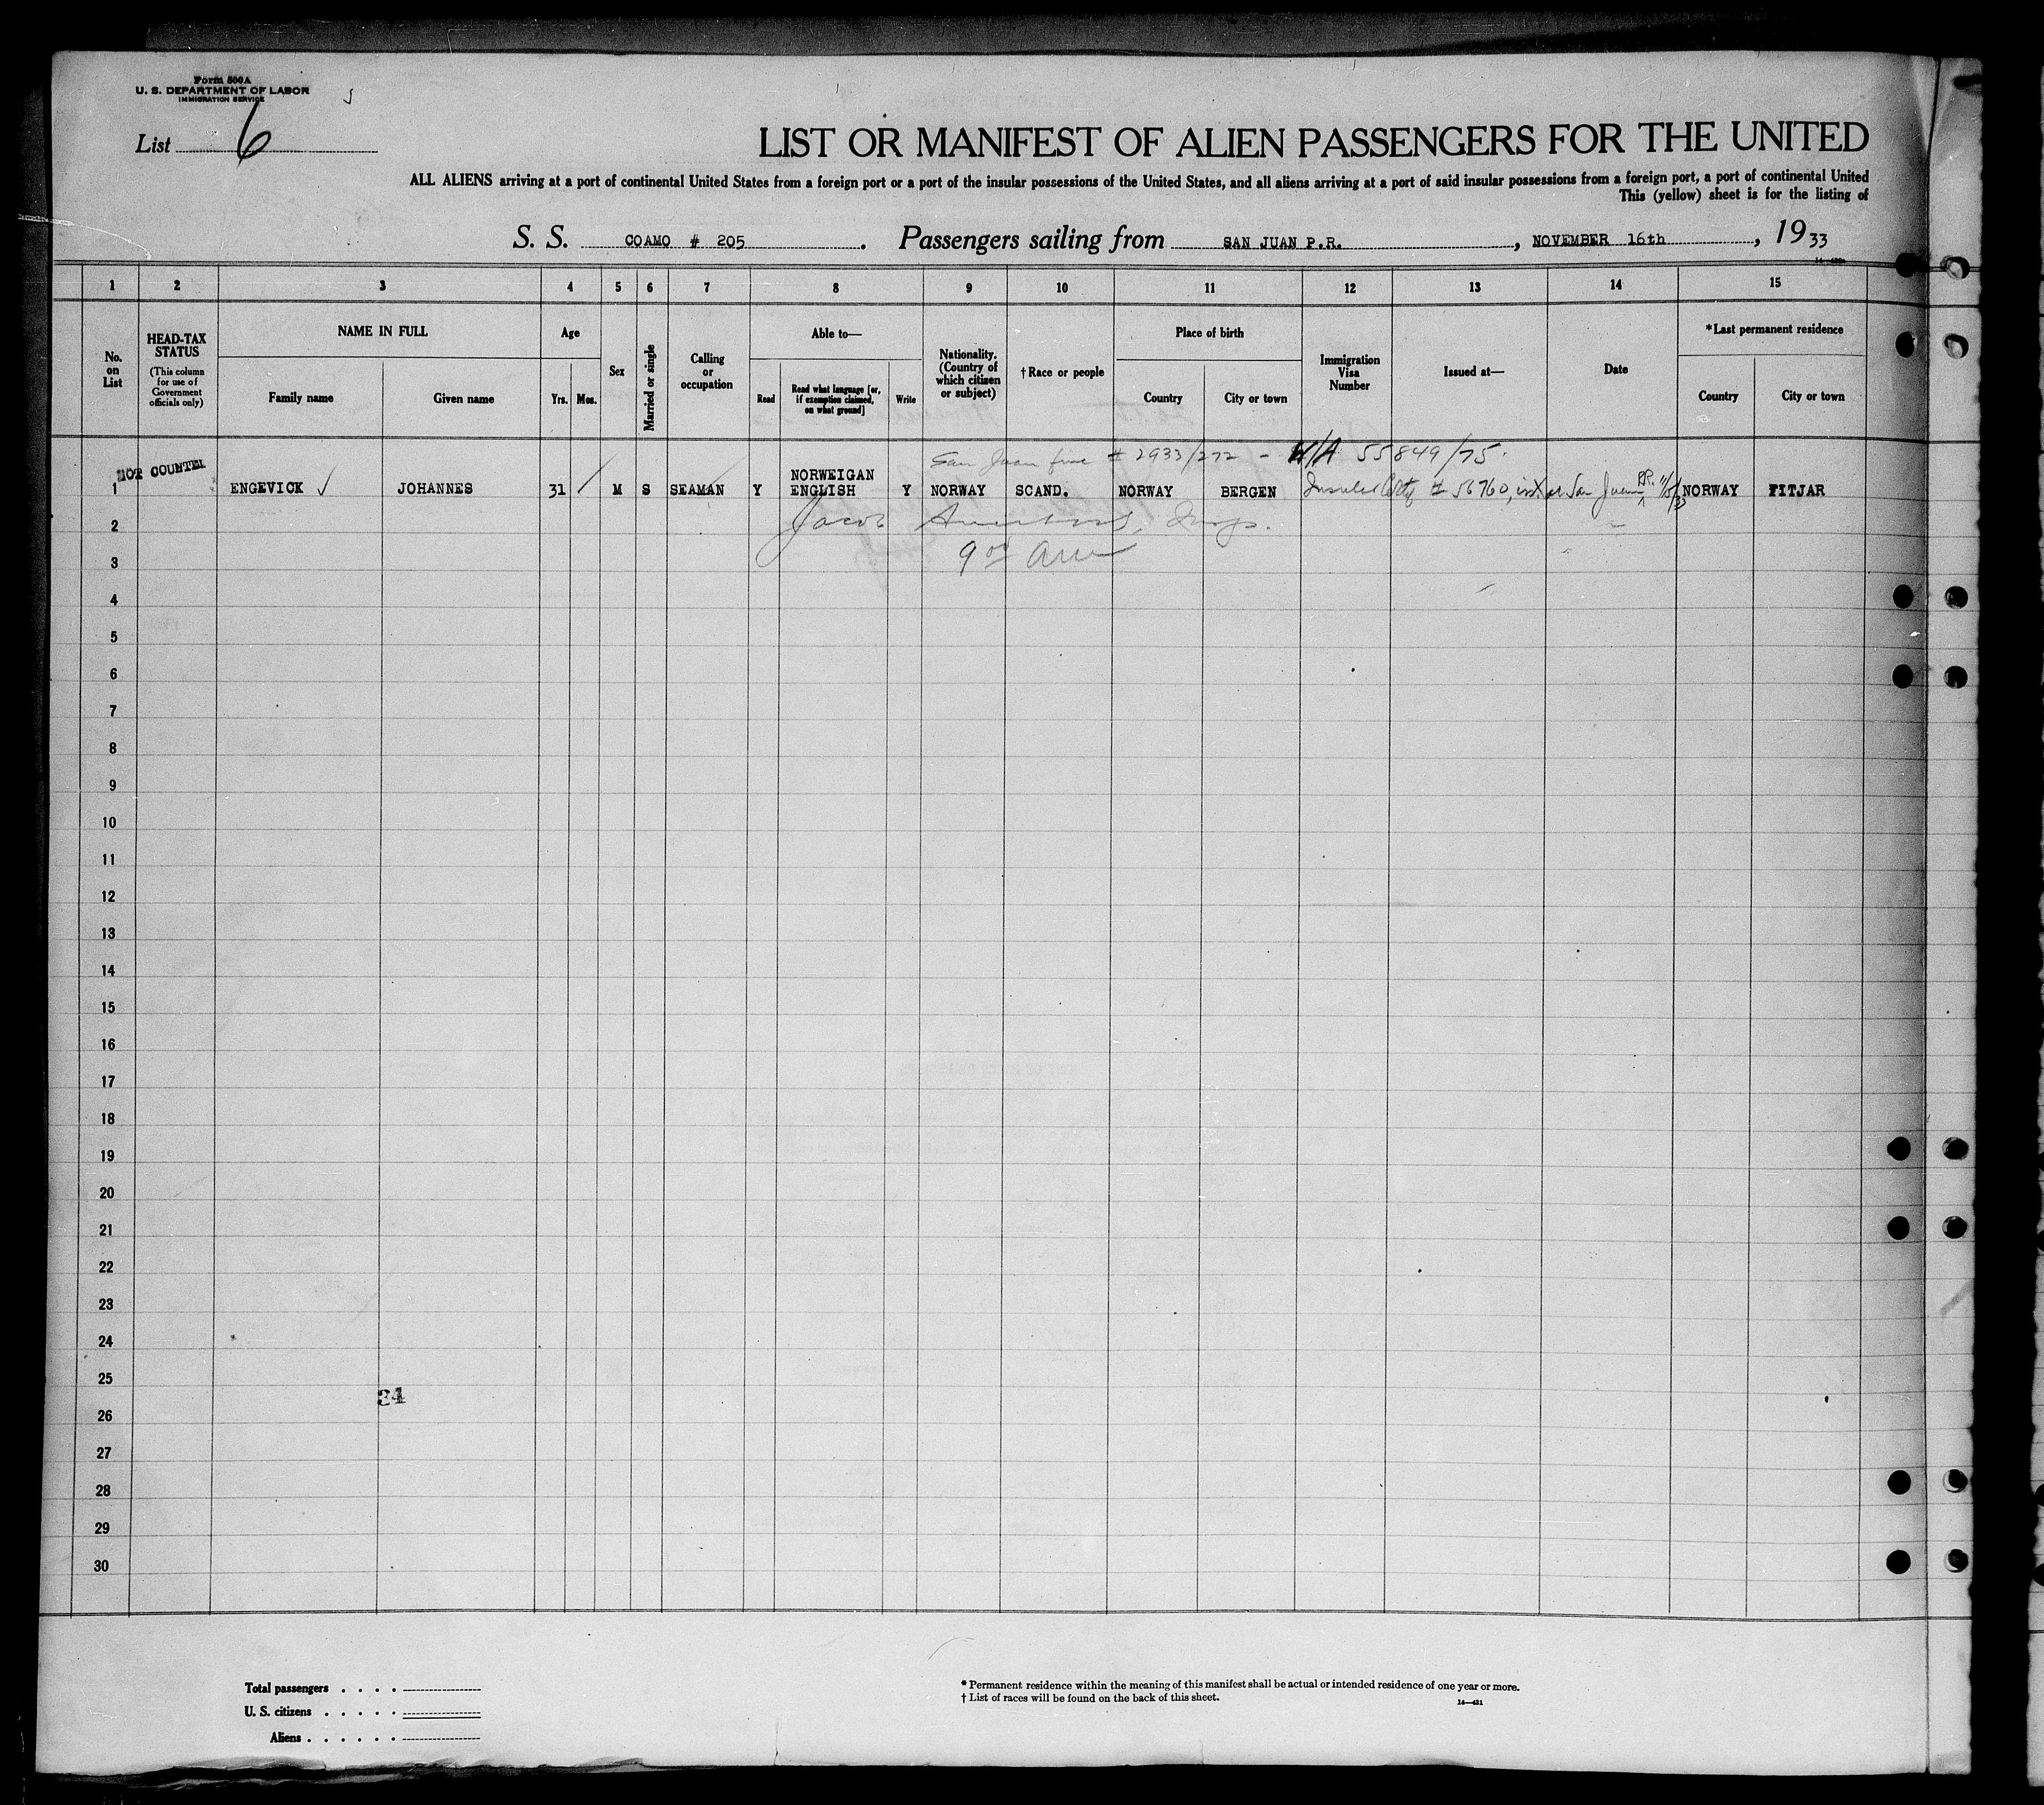 Form 500A
U. S. DEPARTMENT OF LABOR
IMMIGRATION SERVICE
List 6
LIST OR MANIFEST OF ALIEN PASSENGERS FOR THE UNITED
ALL ALIENS arriving at a port of continental United States from a foreign port or a port of the insular possessions of the United States, and all aliens arriving at a port of said insular possessions from a foreign port, a port of continental United
This (yellow) sheet is for the listing of
S. S. COAMO # 205. Passengers sailing from SAN JUAN P.R., NOVEMBER 16th, 1933
1 2 3 4 5 6 7 8 9 10 11 12 13 14 15
No. on List
HEAD-TAX STATUS
(This column for use of Government officials only)
NAME IN FULL
Family name
Given name
Age
Yrs.
Mos.
Sex
Married or single
Calling or occupation
Able to—
Read
Read what language [or, if exemption claimed, on what ground]
Write
Nationality. (Country of which citizen or subject)
†Race or people
Place of birth
Country
City or town
Immigration Visa Number
Issued at—
Date
*Last permanent residence
Country
City or town
San Juan # 2933/272 - 55849/75.
NOT COUNTED
NORWEIGAN
1 ENGEVICK ✓ JOHANNES 31 M S SEAMAN Y ENGLISH Y NORWAY SCAND. NORWAY BERGEN Insular # 56760, San Juan P.R. NORWAY FITJAR
2 Jacob Insp.
3 9 00 am
4
5
6
7
8
9
10
11
12
13
14
15
16
17
18
19
20
21
22
23
24
25
34
26
27
28
29
30
Total passengers . . . .
U. S. citizens . . . . .
Aliens . . . . . .
* Permanent residence within the meaning of this manifest shall be actual or intended residence of one year or more.
† List of races will be found on the back of this sheet.
14—421